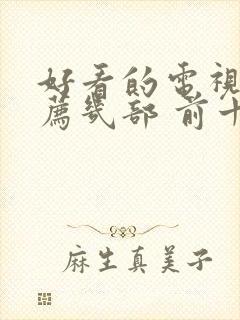 好看的電視
薦幾部 前十
麻生真美子